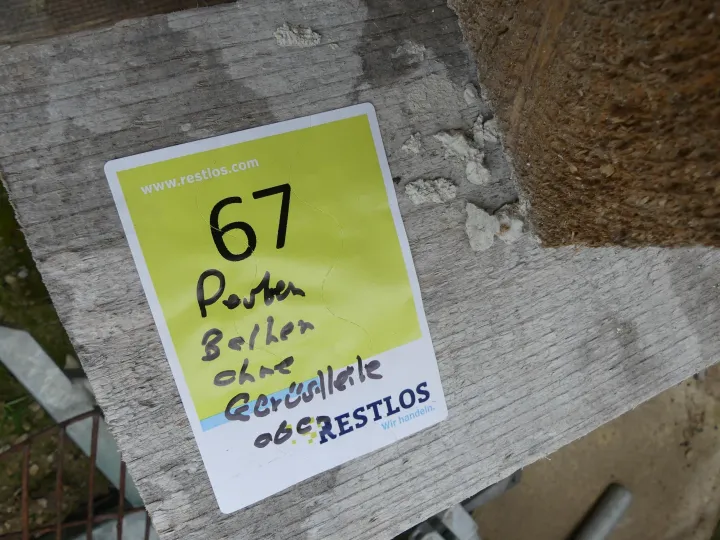 www.restlos.com
67
Posten
Balken
ohne
Gerüstteile
oben
RESTLOS
Wir handeln.